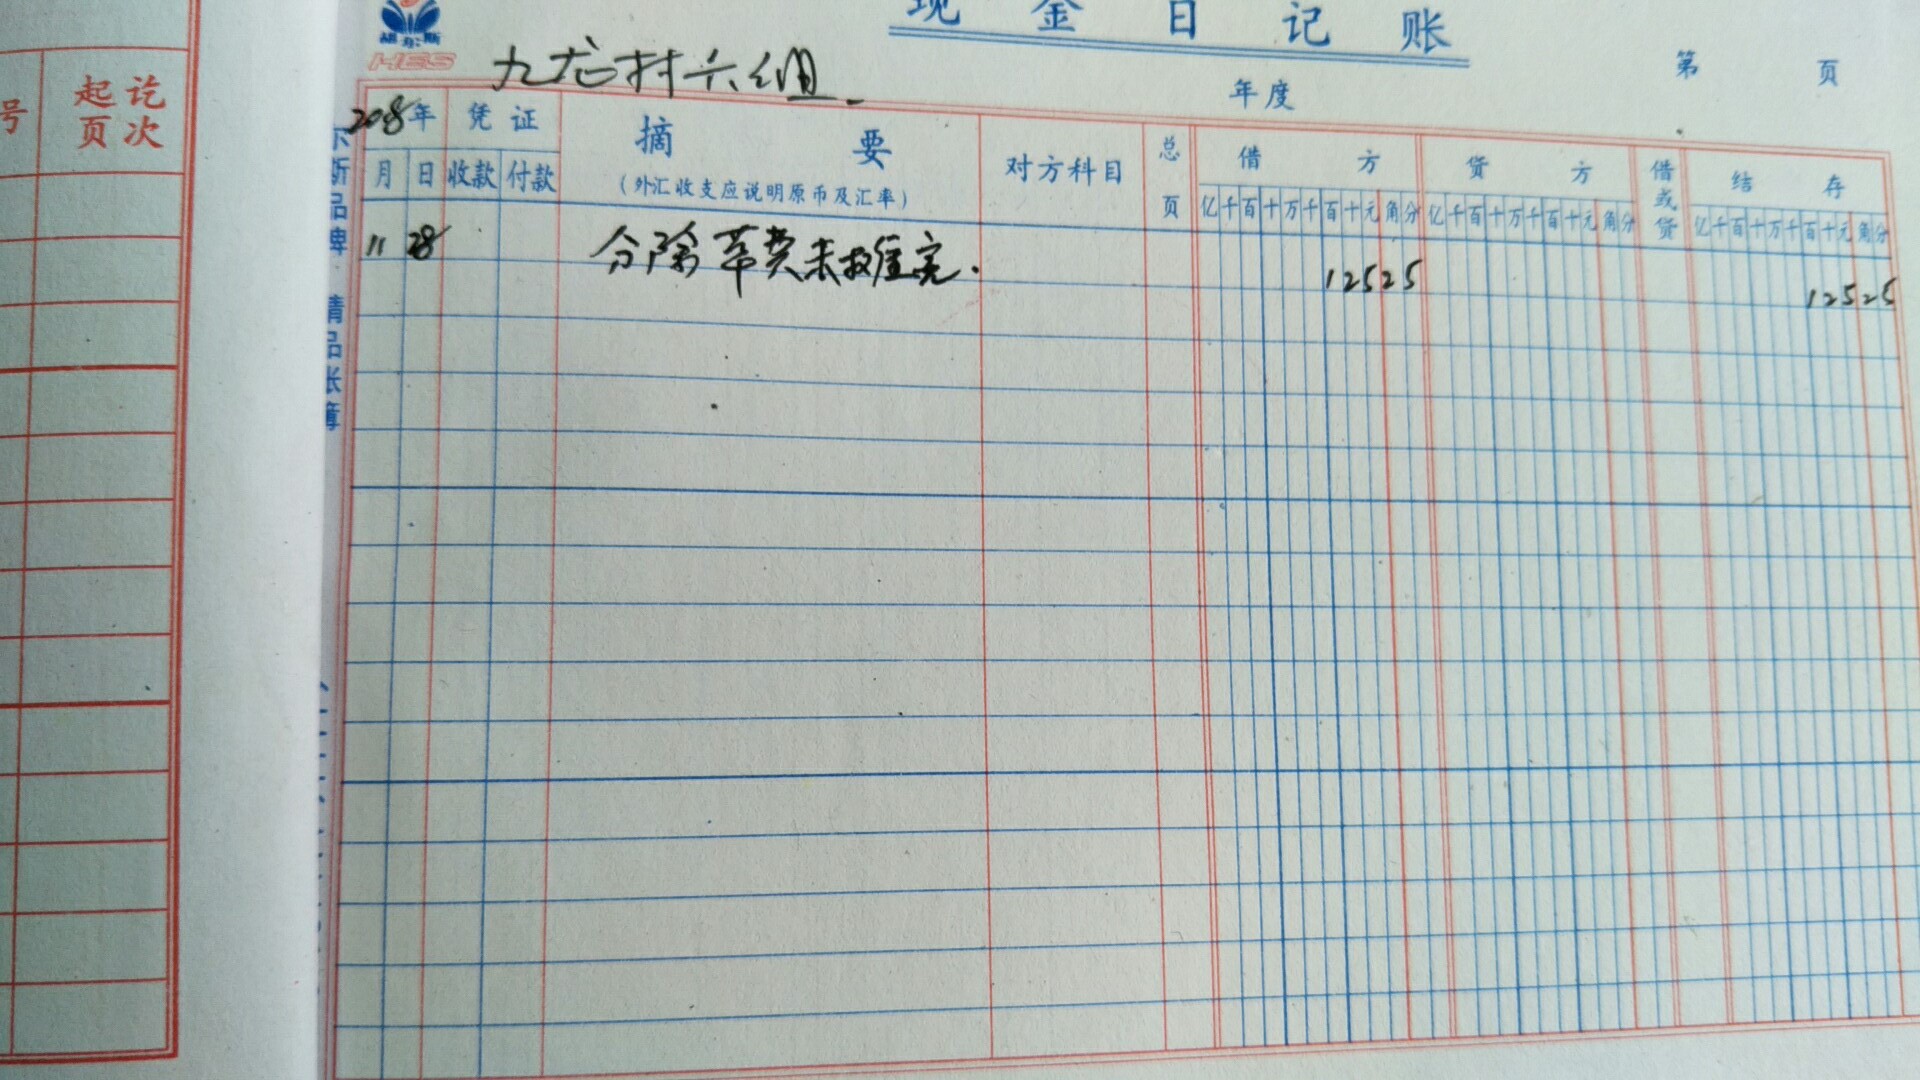 起讫
号
页次
胡尔斯
HES
现金日记账
九龙村六组.
年度
第 页
2018年 凭证 摘要 对方科目 总页 借方 贷方 借或贷 结存
月 日 收款 付款 (外汇收支应说明原币及汇率) 亿千百十万千百十元角分 亿千百十万千百十元角分 亿千百十万千百十元角分
11 28 分除 费未 完. 12525 12525
尔斯品牌 精品帐簿